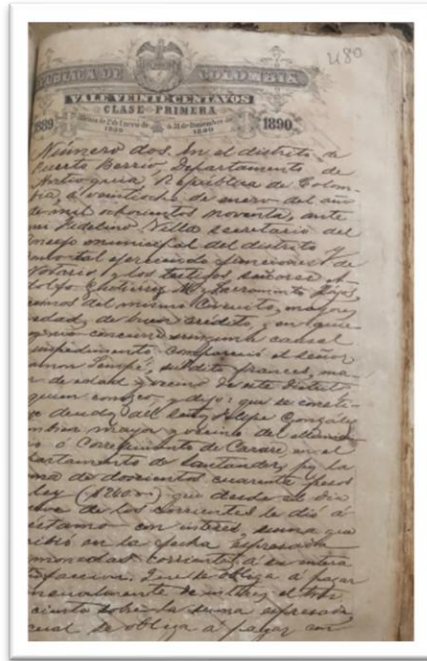 480
REPÚBLICA DE COLOMBIA
VALE VEINTE CENTAVOS
CLASE PRIMERA
1889 1890
Número dos. En el distrito de
Puerto Berrio, Departamento de
Antioquia, República de Colom-
bia, a veintiocho de enero del año
de mil ochocientos noventa, ante
mi Fidelino Villa secretario del
Consejo municipal del distrito y
como tal ejerciendo funciones de
Notario, y los testigos señores
Gutierrez M. y Sacramento
vecinos del mismo Circuito, mayores
edad, de buen crédito, y en quie-
concurre ninguna causal
impedimento, compareció el señor
súbdito frances, ma-
r de edad y vecino de este Distrito
quien conozco, y dijo: que se consti-
deudor del señor Felipe González
mayor y vecino del
o Corregimiento de Carare, en el
partamento de Santander, por la
ma de doscientos cuarenta pesos
ley que desde el dia
de los corrientes le dió á
estamo con interés, suma que
ibió en la fecha expresada
monedas corrientes, á su entera
tisfaccion. Que se obliga á pagar
mensualmente de interés el
ciento sobre la suma expresada
cual se obliga á pagar con